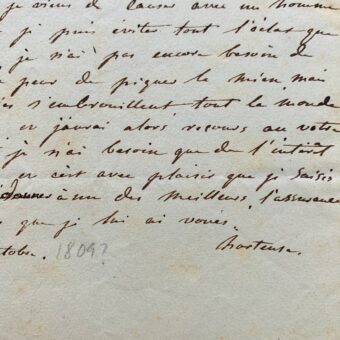 je viens de causer avec un homme
je puis éviter tout l'éclat que
je n'ai pas encore besoin de
peur de piquer le mien, mais
s'embrouillent tout le monde
er j'aurai alors recours au votre
je n'ai besoin que de l'intérêt
er c'est avec plaisir que je saisis
donner à un des meilleurs, l'assurance
que je lui ai voués
tobre. 1809? hortense.